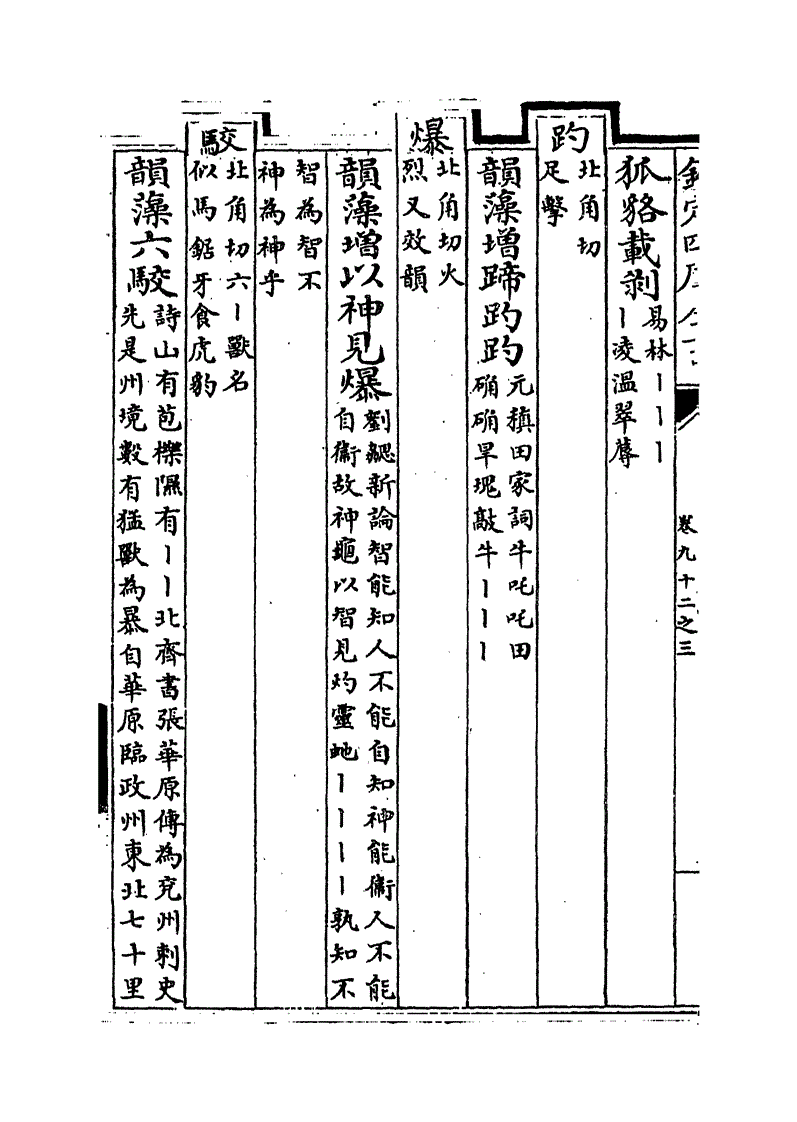 欽定四庫全書
卷九十二之三
狐狢載剝
易林丨丨丨
丨凌溫翠蓐
趵
北角切
足擊
韻藻增蹄趵趵
元稹田家詞牛吒吒田
确确旱塊敲牛丨丨丨
爆
北角切火
烈又效韻
韻藻增以神見爆
劉勰新論智能知人不能自知神能衞人不能
自衞故神龜以智見灼靈虵丨丨丨丨孰知不
智為智不
神為神乎
駮
北角切六丨獸名
似馬鋸牙食虎豹
韻藻六駮
詩山有苞櫟隰有丨丨北齊書張華原傳為兖州刺史
先是州境數有猛獸為暴自華原臨政州東北七十里